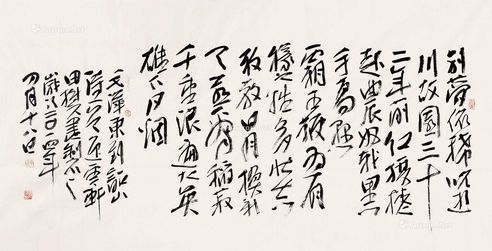 别夢依稀咒逝
川故園三十
二年前红旗捲
起农奴戟黑
手高悬
霸主鞭为有
犧牲多壮志
敢教日月换新
天喜看稻菽
千重浪遍地英
雄下夕烟
毛澤東到韶山
詩 雲軒
書
二〇一四年
四月十八日